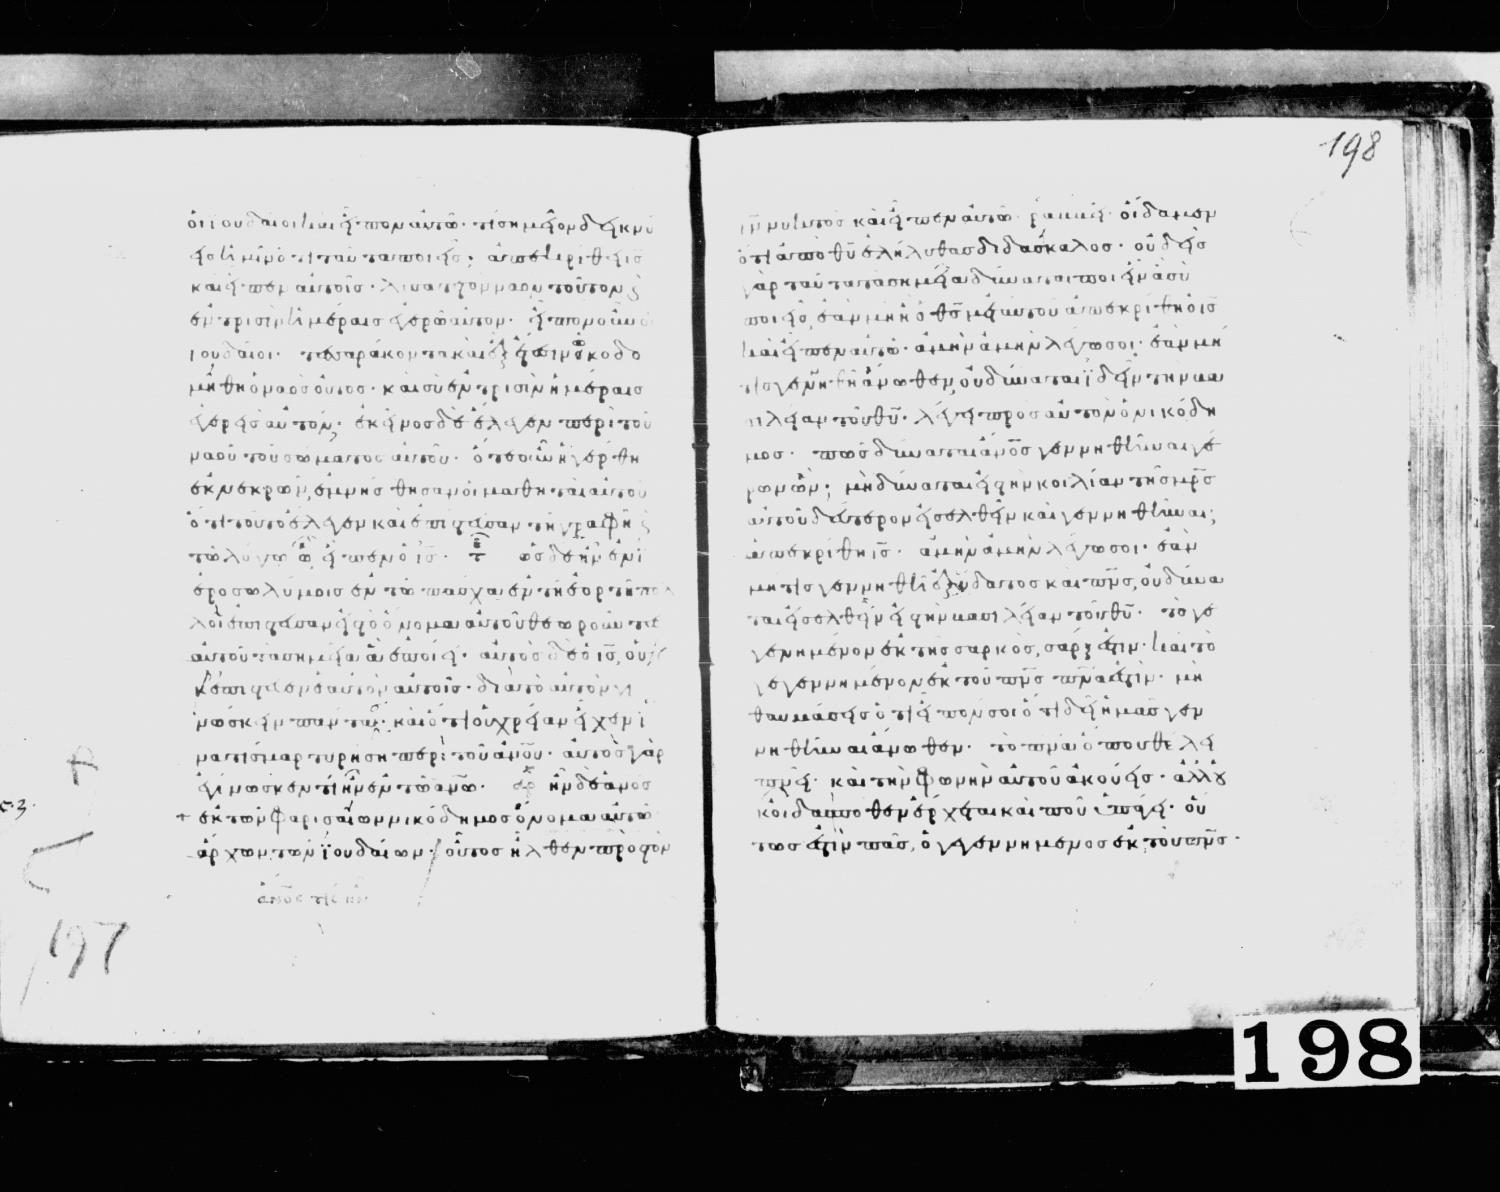 198
οἱ ἰουδαῖοι καὶ εἶπον αὐτῶ· τί σημεῖον δεικνύ
εις ἡμῖν ὅτι ταῦτα ποιεῖς; ἀπεκρίθη ὁ ις
καὶ εἶπεν αὐτοῖς· λύσατε τὸν ναὸν τοῦτον ϗ
ἐν τρισὶν ἡμέραις ἐγερῶ αὐτόν· εἶπον οὖν οἱ
ἰουδαῖοι· τεσσαράκοντα καὶ ἓξ ἔτεσιν ὠκοδο
μήθη ὁ ναὸς οὗτος· καὶ σὺ ἐν τρισὶν ἡμέραις
ἐγερεῖς αὐτόν; ἐκεῖνος δὲ ἔλεγεν περὶ τοῦ
ναοῦ τοῦ σώματος αὐτοῦ· ὅτε οὖν ἠγέρθη
ἐκ νεκρῶν, ἐμνήσθησαν οἱ μαθηταὶ αὐτοῦ
ὅτι τοῦτο ἔλεγεν καὶ ἐπίστευσαν τῆ γραφῆ ϗ
τῶ λόγω ὧ εἶπεν ὁ ις· ὡς δὲ ἦν ἐν ἱ
εροσολύμοις ἐν τῶ πάσχα ἐν τῆ ἑορτῆ πολ
λοὶ ἐπίστευσαν εἰς τὸ ὄνομα αὐτοῦ θεωροῦντες
αὐτοῦ τὰ σημεῖα ἃ ἐποίει· αὐτὸς δὲ ὁ ις, οὐ
κ ἐπίστευεν ἑαυτὸν αὐτοῖς· διὰ τὸ αὐτὸν γι
νώσκειν πάντας· καὶ ὅτι οὐ χρείαν εἶχεν ἵ
να τίς μαρτυρήση περὶ τοῦ ανου· αὐτὸς γὰρ
ἐγίνωσκεν τί ἦν ἐν τῶ ανω· ἦν δὲ ανος
+ ἐκ τῶν φαρισαίων νικόδημος ὄνομα αὐτῶ
ἄρχων τῶν ἰουδαίων· οὗτος ἦλθεν πρὸς τὸν
197
ιν νυκτὸς καὶ εἶπεν αὐτῶ· ῥαββεί· οἴδαμεν
ὅτι ἀπὸ θυ ἐλήλυθας διδάσκαλος· οὐδεὶς
γὰρ ταῦτα τὰ σημεῖα δύναται ποιεῖν ἃ σὺ
ποιεῖς, ἐὰν μὴ ἦ ὁ θς μετ' αὐτοῦ ἀπεκρίθη ὁ ις
καὶ εἶπεν αὐτῶ· ἀμὴν ἀμὴν λέγω σοι· ἐὰν μή
τις γεννηθῆ ἄνωθεν, οὐ δύναται ἰδεῖν τὴν βα
σιλείαν τοῦ θυ· λέγει πρὸς αὐτὸν ὁ νικόδη
μος· πῶς δύναται ανος γεννηθῆναι γέ
ρων ὤν; μὴ δύναται εἰς τὴν κοιλίαν τῆς μρς
αὐτοῦ δεύτερον εἰσελθεῖν καὶ γεννηθῆναι;
ἀπεκρίθη ις· ἀμὴν ἀμὴν λέγω σοι· ἐὰν
μή τις γεννηθῆ ἐξ ὕδατος καὶ πνς, οὐ δύνα
ται εἰσελθεῖν εἰς τὴν βασιλείαν τοῦ θυ· τὸ γε
γενημένον ἐκ τῆς σαρκὸς, σάρξ ἐστιν· καὶ τὸ
γεγεννημένον ἐκ τοῦ πνς πνα ἐστίν· μὴ
θαυμάσης ὅτι εἶπόν σοι ὅτι δεῖ ἡμᾶς γεν
νηθῆναι ἄνωθεν· τὸ πνα ὅπου θέλει
πνεῖ· καὶ τὴν φωνὴν αὐτοῦ ἀκούεις· ἀλλ' οὐ
κ οἶδας πόθεν ἔρχεται καὶ ποῦ ὑπάγει· οὕ
τως ἐστὶν πᾶς, ὁ γεγεννημένος ἐκ τοῦ πνς·
198